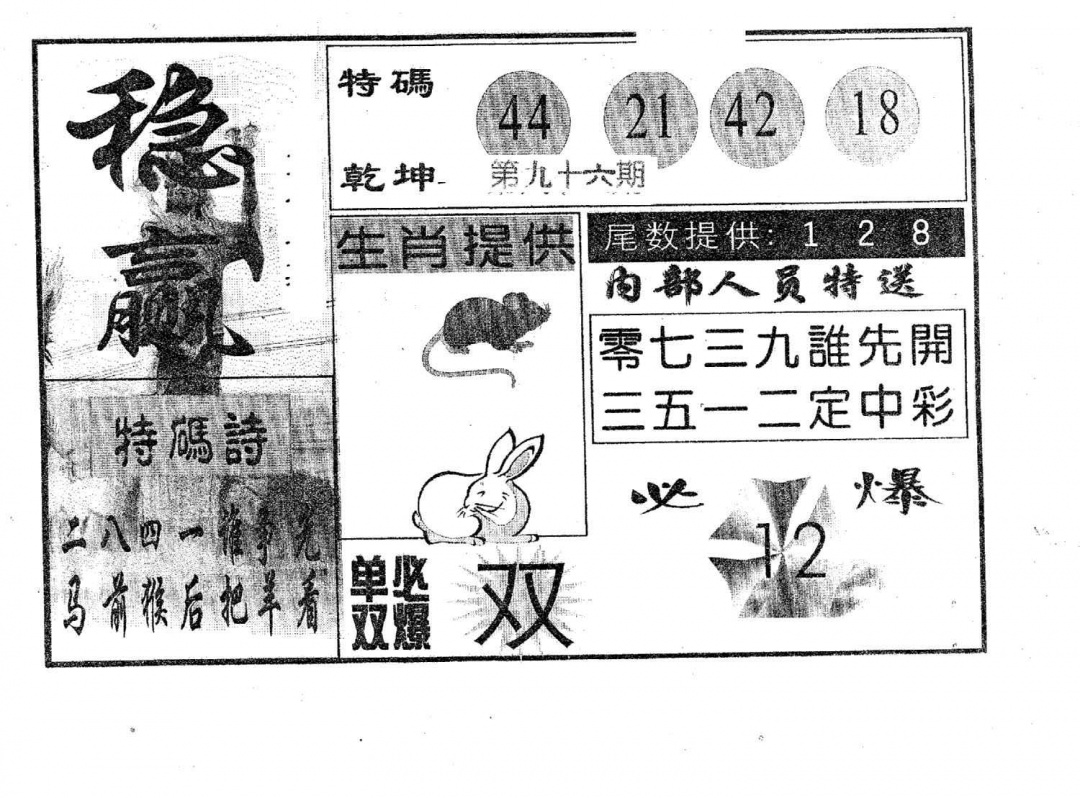 稳赢
特碼
44 21 42 18
乾坤
第九十六期
生肖提供
尾数提供: 1 2 8
内部人员特送
零七三九誰先開
三五一二定中彩
特碼詩
二八四一誰爭先
马前猴后把羊看
单双必爆
双
必爆
12